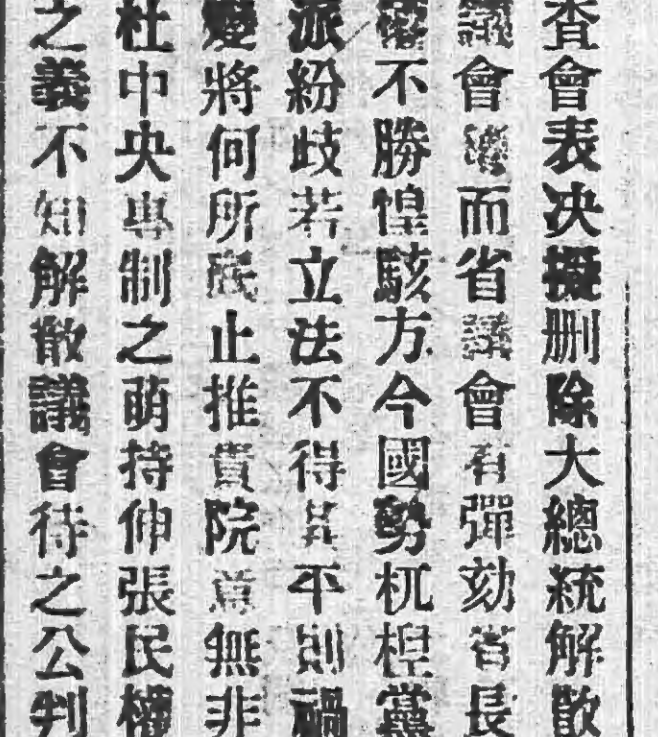 查會表决擬刪除大總統解散
議會權而省議會有彈劾省長
權不勝惶駭方今國勢杌棿黨
派紛歧若立法不得其平則禍
變將何所底止推貴院意無非
杜中央專制之萌持伸張民權
之義不知解散議會待之公判